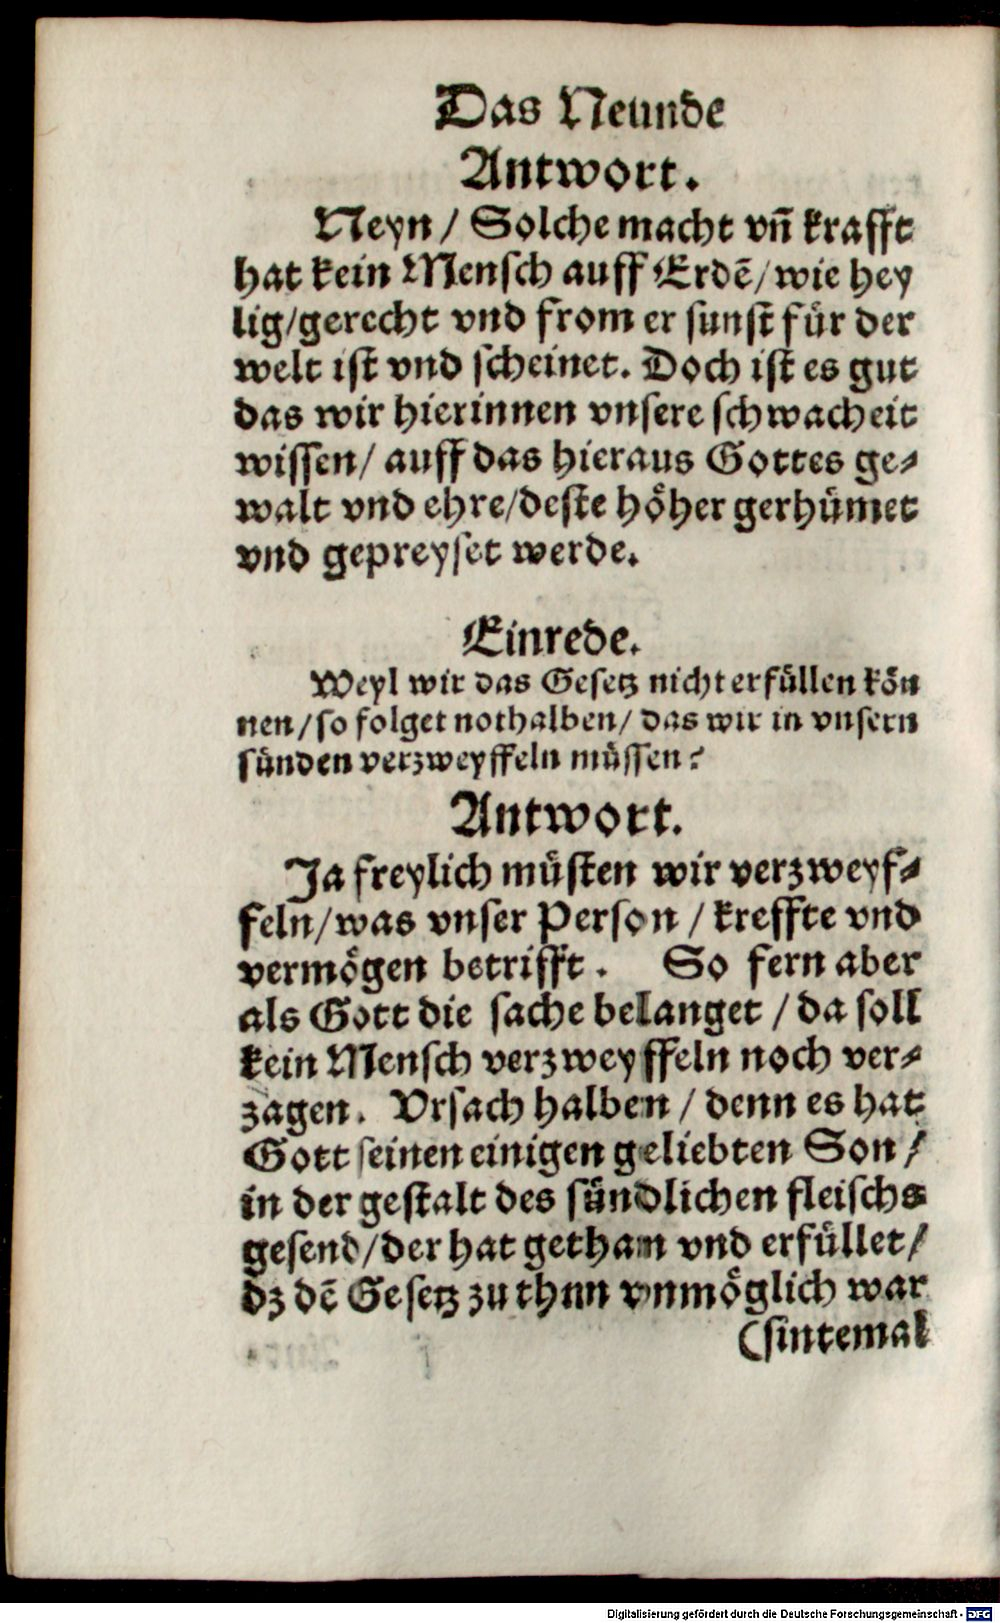 Das Neunde
Antwort.
Neyn / Solche macht vñ krafft
hat kein Mensch auff Erdẽ/ wie hey
lig/gerecht vnd from er sunst für der
welt ist vnd scheinet. Doch ist es gut
das wir hierinnen vnsere schwacheit
wissen/ auff das hieraus Gottes ge⸗
walt vnd ehre/deste höher gerhümet
vnd gepreyset werde.
Einrede.
Weyl wir das Gesetz nicht erfüllen kön
nen/so folget nothalben/ das wir in vnsern
sünden verzweyffeln müssen?
Antwort.
Ja freylich müsten wir verzweyf⸗
feln/was vnser Person / kreffte vnd
vermögen betrifft. So fern aber
als Gott die sache belanget / da soll
kein Mensch verzweyffeln noch ver⸗
zagen. Vrsach halben / denn es hat
Gott seinen einigen geliebten Son /
in der gestalt des sündlichen fleischs
gesend/der hat gethan vnd erfüllet/
dz dẽ Gesetz zu thun vnmöglich war
(sintemal
Digitalisierung gefördert durch die Deutsche Forschungsgemeinschaft - DFG